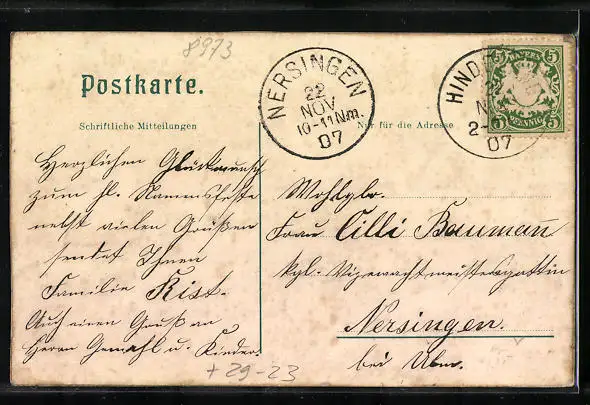 8973
Postkarte.
NERSINGEN
22
NOV
10-11 Nm.
07
HIND
22
N
2-
07
5 BAYERN 5
5 PFENNIG 5
Schriftliche Mitteilungen
Nur für die Adresse
Herzlichen Glückwunsch
zum hl. Namensfeste
nebst vielen Grüßen
sendet Ihnen
Familie Rist.
Auch einen Gruß an
Herrn Gemahl u. Kinder.
Wohlgb.
Frau Cilli Baumañ
kgl. Vizewachtmeistersgattin
Nersingen.
bei Ulm.
+ 29-23